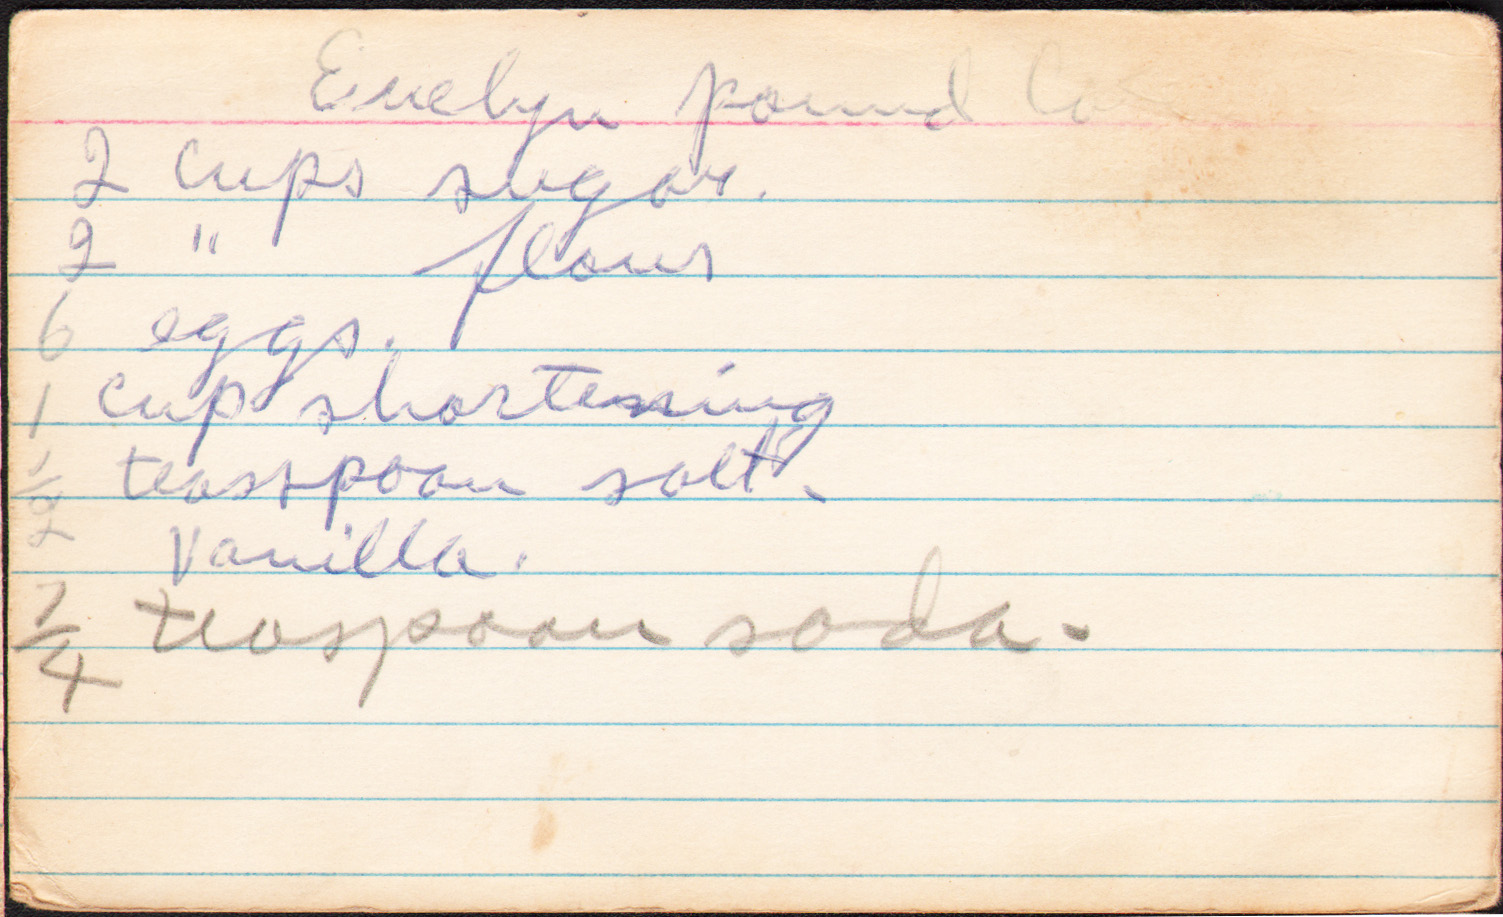 Evelyn pound
2 cups sugar.
2 " flour
6 eggs.
1 cup shortening
1/2 teasspoon salt.
Vanilla.
1/4 teaspoon soda.